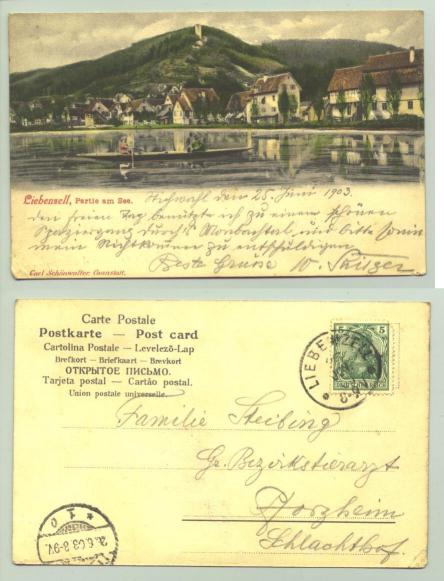 Liebenzell, Partie am See.
Stichwahl den 25. Juni 1903.
den freien Tag benützte ich zu einem schönen
Spaziergang durch's Monbachtal und bitte somit
mein Nichtkommen zu entschuldigen
Beste Grüsse W.
Carl Schönwalter Cannstatt.
Carte Postale
Postkarte — Post card
Cartolina Postale — Levelező-Lap
Brefkort — Briefkaart — Brevkort
ОТКРЫТОЕ ПИСЬМО.
Tarjeta postal — Cartão postal.
Union postale universelle.
5 5
DEUTSCHES REICH
LIEBENZELL
Familie Steibing
Gr. Bezirkstierarzt
Pforzheim
Schlachthof.